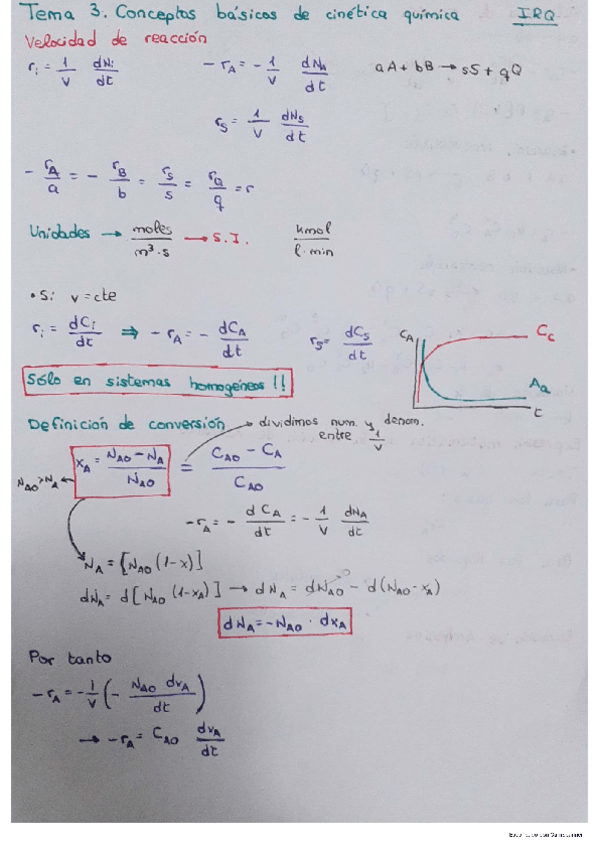 Tema 3. Conceptos básicos de cinética química IRQ
Velocidad de reacción
ri = 1/V dNi/dt   - rA = - 1/V dNA/dt   aA + bB → sS + qQ
rS = 1/V dNS/dt
- rA/a = - rB/b = rS/s = rQ/q = r
Unidades → moles/m³·s → S.I.   kmol/l·min
• Si V = cte
ri = dCi/dt ⇒ - rA = - dCA/dt   rS = dCS/dt
CA Cc Aa t
Sólo en sistemas homogéneos!!
Definición de conversión → dividimos num. y denom. entre 1/V
NAO > NA ← XA = NAO - NA / NAO = CAO - CA / CAO
- rA = - dCA/dt = - 1/V dNA/dt
NA = [NAO (1-x)]
dNA = d[NAO (1-xA)] → dNA = dNAO - d(NAO - xA)
dNA = - NAO · dxA
Por tanto
- rA = - 1/V (- NAO dxA/dt)
→ - rA = CAO dxA/dt